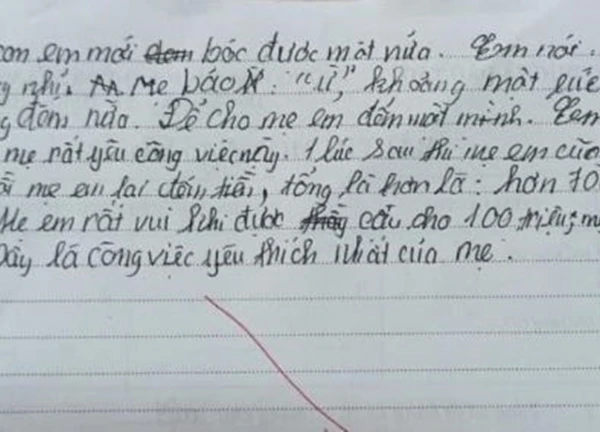 em mới đem bóc được một nửa. Em nói.
nhỉ. Mẹ bảo: "ừ," khoảng một lúc
đếm nữa. Để cho mẹ em đếm một mình. Em
mẹ rất yêu công việc này. 1 lúc sau thì mẹ em
mẹ em lại đếm tiền, tổng là hơn là: hơn 10
Mẹ em rất vui khi được thầy cầu cho 100 triệu,
Đây là công việc yêu thích nhất của mẹ.